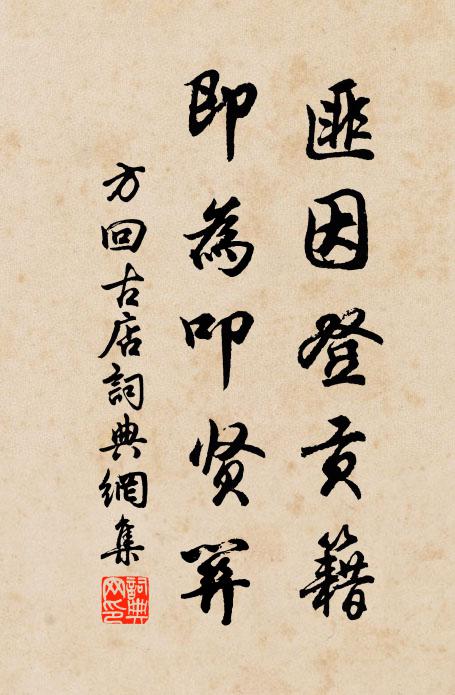 匪因登贡籍
即為叩贤関
方回古店詞典網集
詞典网印